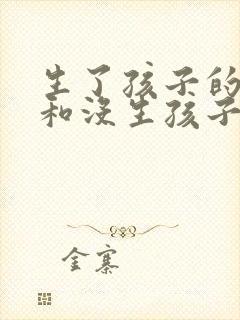 生了孩子的
和没生孩子
金寨